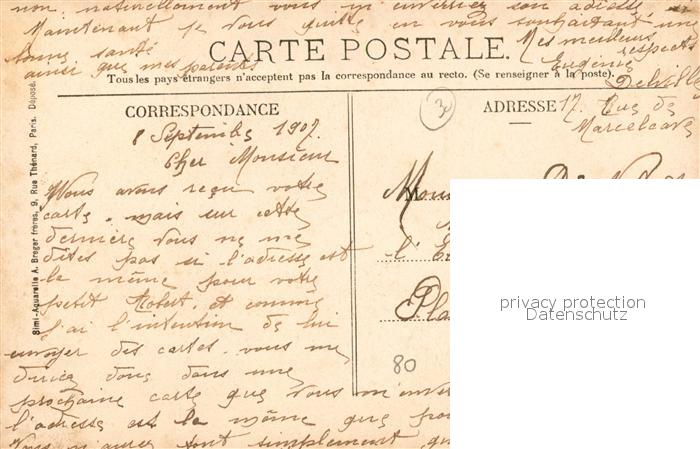 non naturellement vous m'enverrez son adresse
Maintenant je vous quitte en vous souhaitant une
bonne santé
ainsi que mes parents
Mes meilleurs
respects
Eugénie
Delville
17. Rue de
Marcelcave
CARTE POSTALE.
Tous les pays étrangers n'acceptent pas la correspondance au recto. (Se renseigner à la poste).
CORRESPONDANCE
ADRESSE
30
8 Septembre 1907
Cher Monsieur
Nous avons reçu votre
carte. mais sur cette
dernière vous ne me
dites pas si l'adresse est
la même pour votre
petit Robert. et comme
j'ai l'intention de lui
envoyer des cartes. vous me
direz donc dans une
prochaine carte que vous m'enver
l'adresse est la même que pour
Vous n'aurez tout simplement qu
M
Mons
l'
Pla
80
Simi-Aquarelle A. Breger frères, 9, Rue Thénard, Paris. Déposé.
privacy protection
Datenschutz